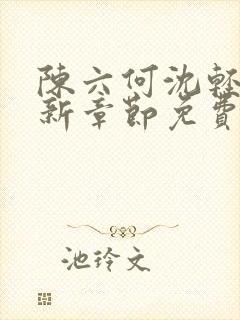 陳六何沈輕
新章節免費
池玲文